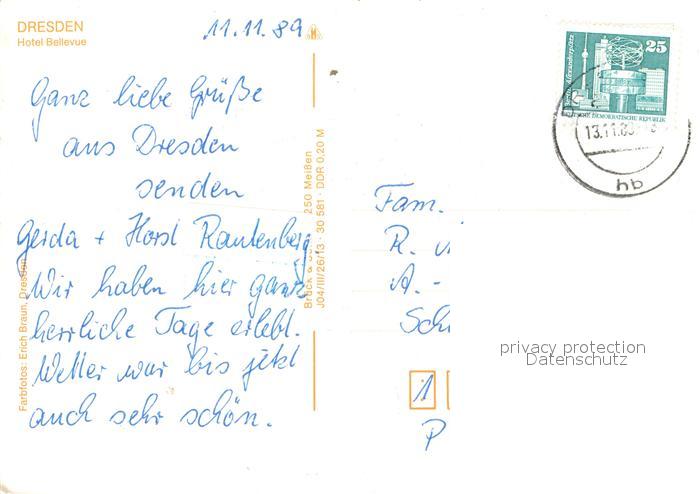 DRESDEN
Hotel Bellevue
11.11.89
Ganz liebe Grüße
aus Dresden
senden
Gerda + Horst Rautenberg
Wir haben hier ganz
herrliche Tage erlebt.
Wetter war bis jetzt
auch sehr schön.
Farbfotos: Erich Braun, Dresden
250 Meißen
J04/III/26/13 · 30 581 · DDR 0,20 M
25
DEMOKRATISCHE REPUBLIK
13.11.89
hb
Fam.
R.
A. -
Sch
1
P
privacy protection
Datenschutz